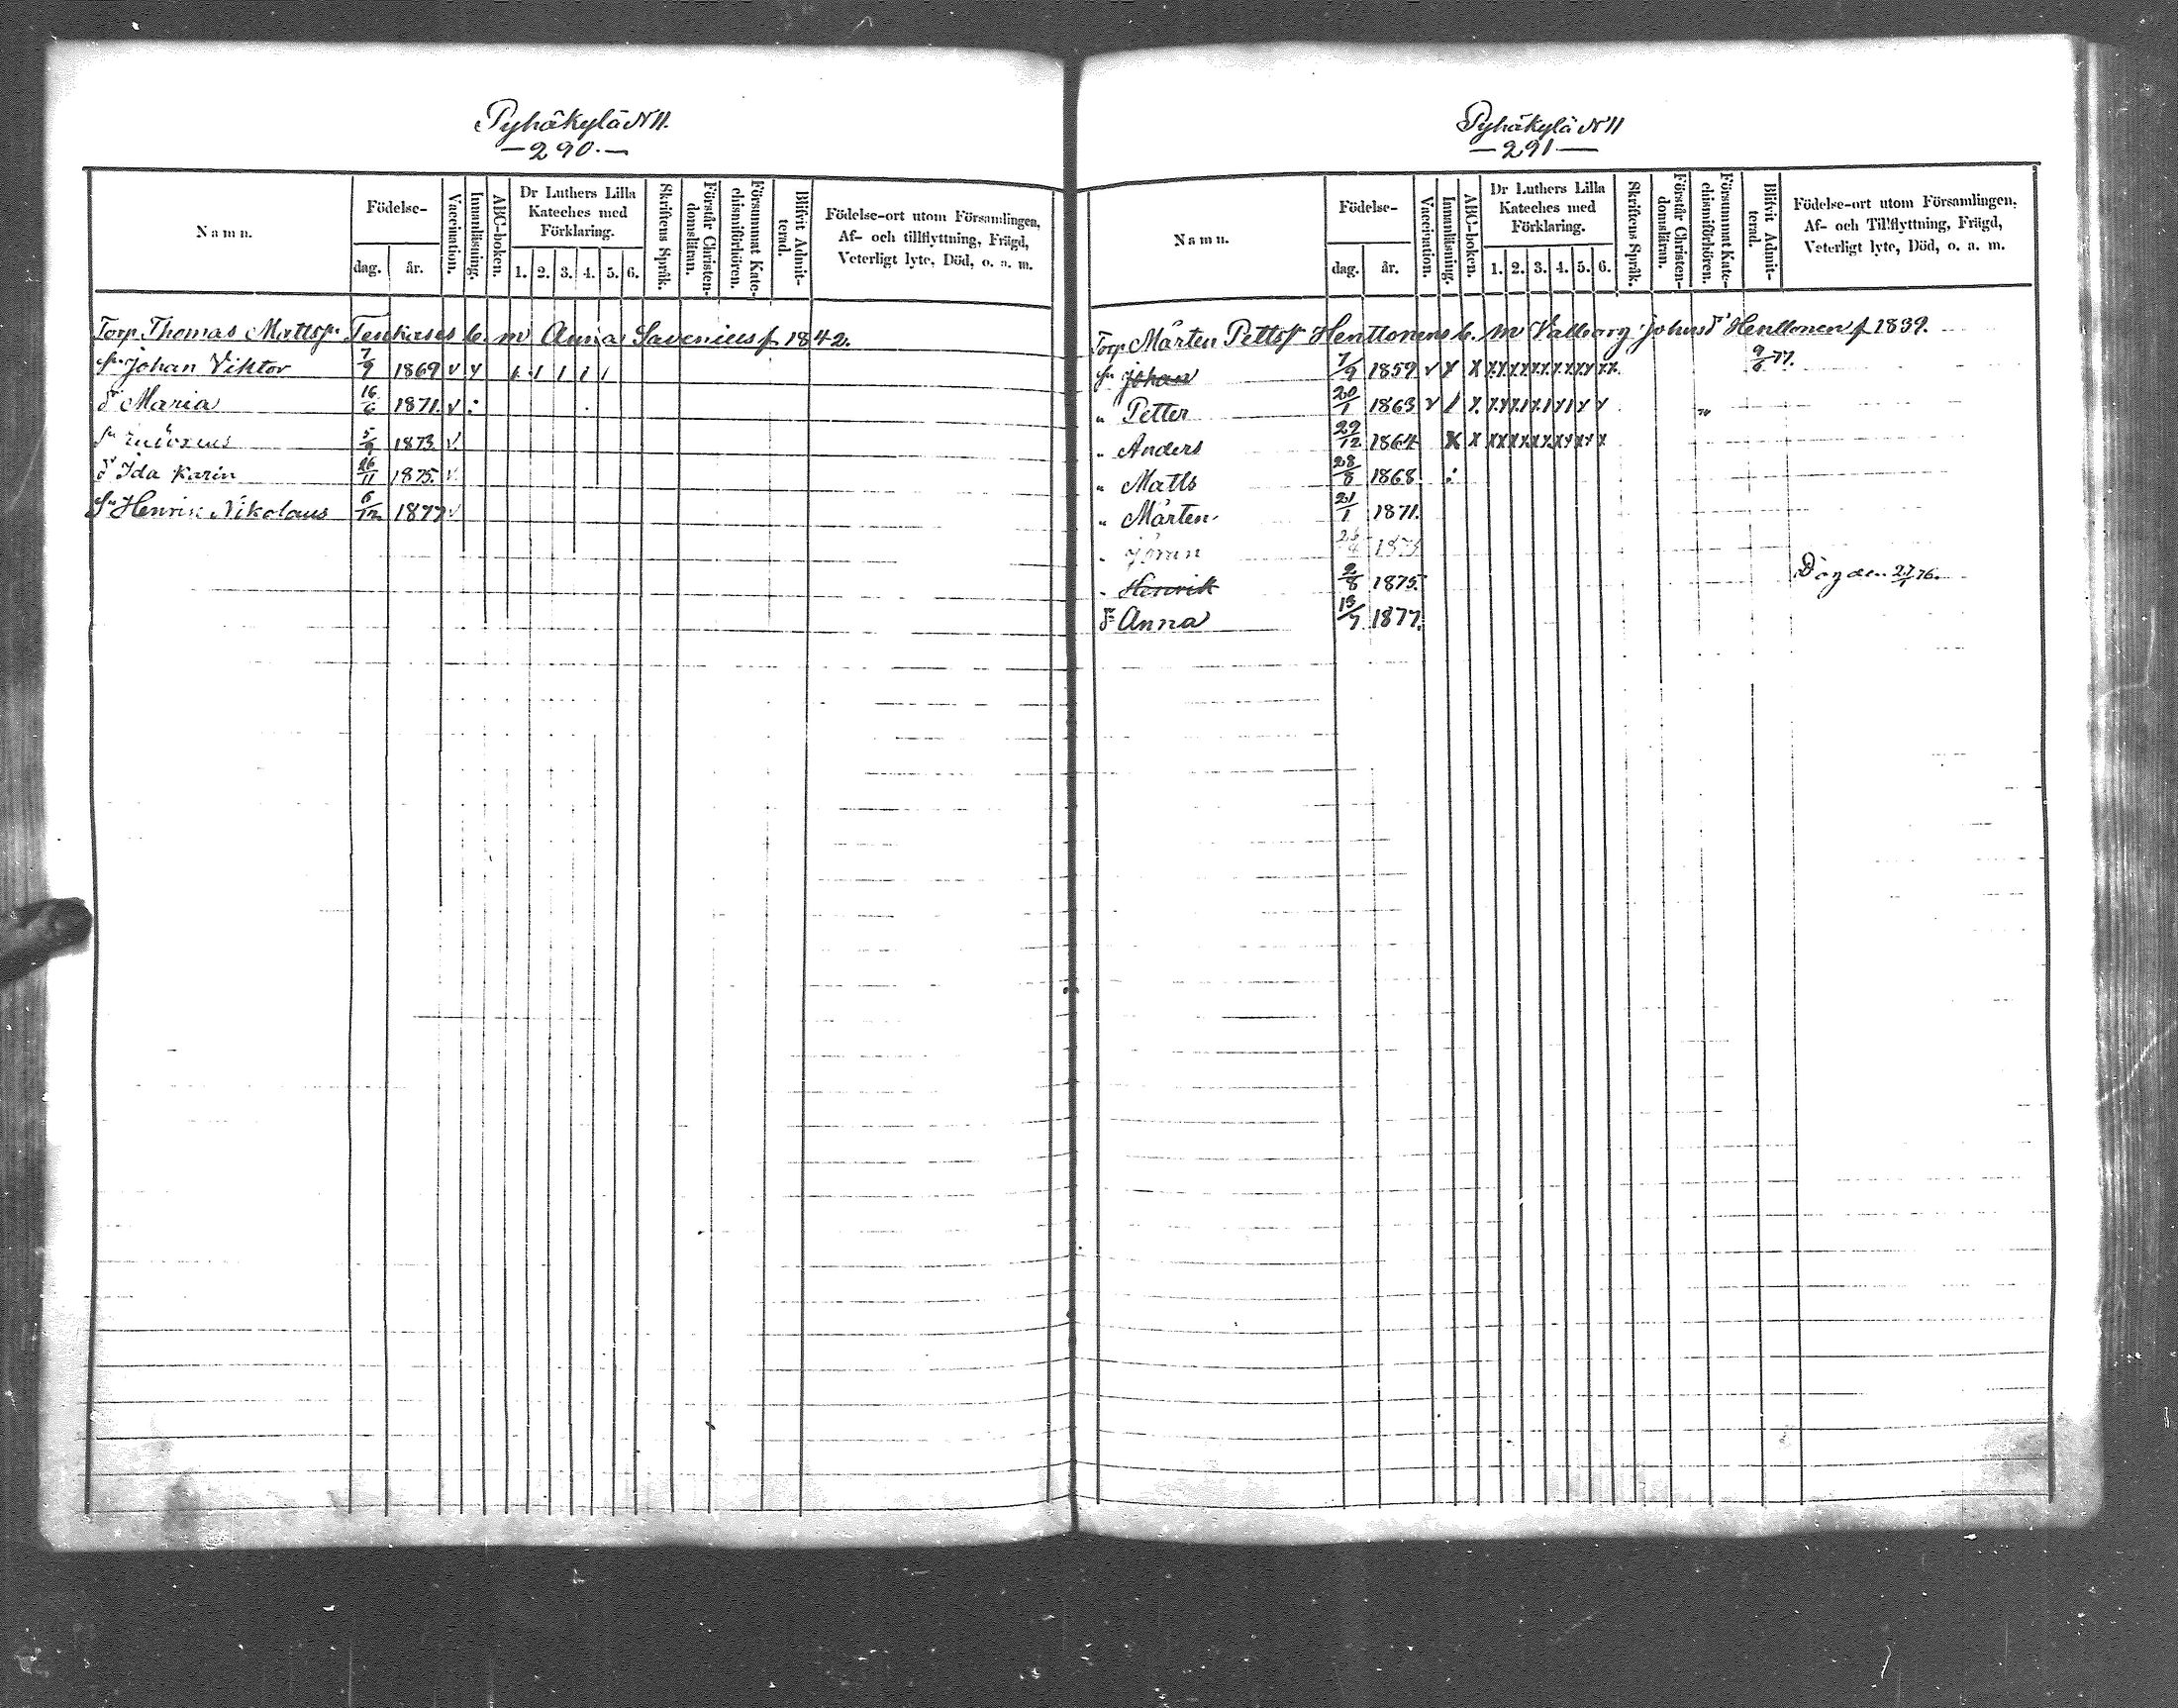 Pyhäkylä N 11.
— 290. —
Namn.
Födelse-
dag.
år.
Vaccination.
Innanläsning.
ABC-boken.
Dr Luthers Lilla
Kateches med
Förklaring.
1. 2. 3. 4. 5. 6.
Skriftens Språk.
Förstår Christen-
domsläran.
Försummat Kate-
chismiförhören.
Blifvit Admit-
terad.
Födelse-ort utom Församlingen,
Af- och tillflyttning, Frägd,
Veterligt lyte, Död, o. a. m.
Torp. Thomas Matts sn b. m Anna Savenius f. 1842.
sn Johan Viktor 7/9 1869 v v 1 1 1 1 1
dr Maria 16/6 1871. v :
sn 5/9 1873. v.
dr Ida Karin 26/11 1875. v
sn Henrik Nikolaus 6/12 1877 v
Pyhäkylä N 11
— 291 —
Namn.
Födelse-
dag.
år.
Vaccination.
Innanläsning.
ABC-boken.
Dr Luthers Lilla
Kateches med
Förklaring.
1. 2. 3. 4. 5. 6.
Skriftens Språk.
Förstår Christen-
domsläran.
Försummat Kate-
chismiförhören.
Blifvit Admit-
terad.
Födelse-ort utom Församlingen,
Af- och Tillflyttning, Frägd,
Veterligt lyte, Död, o. a. m.
Torp. Mårten Petts sn Henttonens b. m Valborg Johns dr Henttonen f. 1839.
sn Johan 7/9 1859 v x x x x x x x x x x x x x x 9/6 77.
" Petter 20/1 1863 v / x
" Anders 29/12 1864 x x x x x x x x x x x x x x
" Matts 28/8 1868. :
" Mårten 21/1 1871.
" Henrik 2/8 1875. Dog den 27/1 76.
dr Anna 13/7 1877.